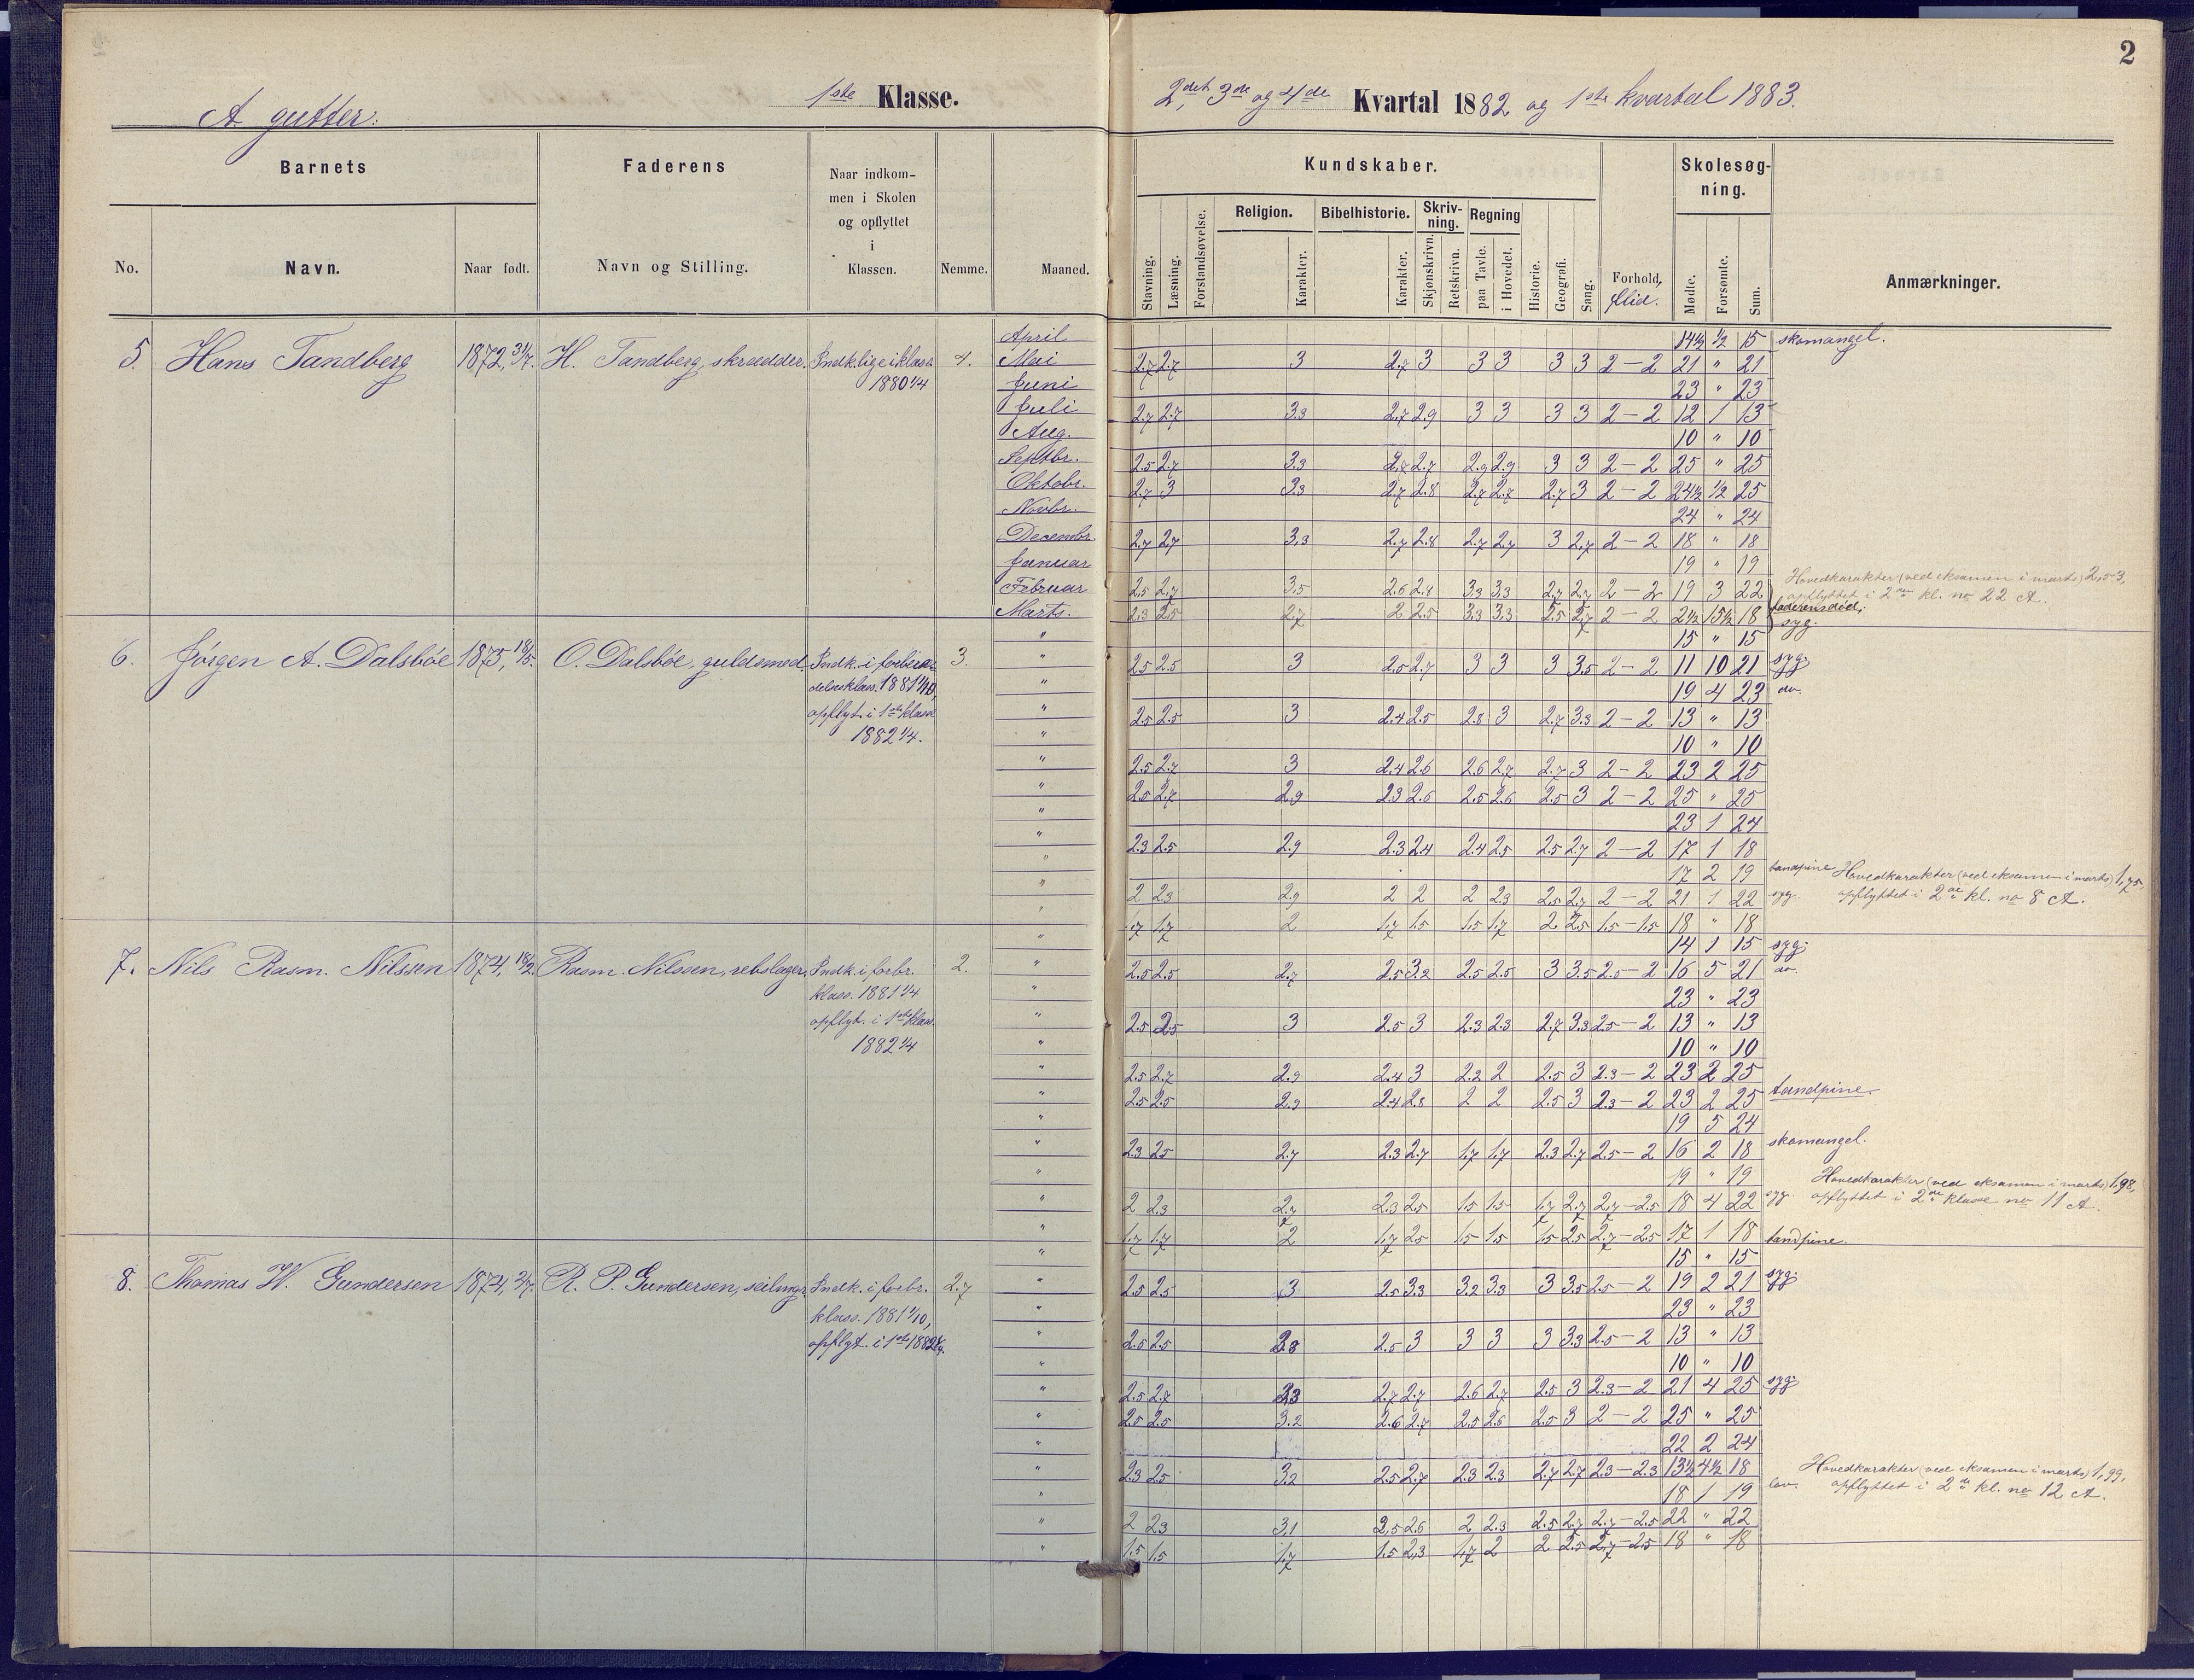 2
A. gutter.
1ste Klasse.
2det, 3de og 4de Kvartal 1882 og 1ste kvartal 1883.
Barnets
Faderens
Naar indkom-
men i Skolen
og opflyttet
i
Klassen.
Kundskaber.
Skolesøg-
ning.
No.
Navn.
Naar født.
Navn og Stilling.
Nemme.
Maaned.
Stavning.
Læsning.
Forstandsøvelse.
Religion.
Karakter.
Bibelhistorie.
Karakter.
Skriv-
ning.
Skjønskrivn.
Retskrivn.
Regning
paa Tavle.
i Hovedet.
Historie.
Geografi.
Sang.
Forhold,
flid.
Mødte.
Forsømte.
Sum.
Anmærkninger.
5. Hans Tandberg 1872, 31/7. H. Tandberg, skrædder. Indk. lige i klass.
1880 1/4
4.
April 14½ ½ 15 skomangel.
Mai 2.7 2.7 3 2.7 3 3 3 3 3 2-2 21 " 21
Juni 23 " 23
Juli 2.7 2.7 3.3 2.7 2.9 3 3 3 3 2-2 12 1 13
Aug. 10 " 10
Septbr. 2.5 2.7 3.3 2.7 2.7 2.9 2.9 3 3 2-2 25 " 25
Oktobr. 2.7 3 3.3 2.7 2.8 2.7 2.7 2.7 3 2-2 24½ ½ 25
Novbr. 24 " 24
Decembr. 2.7 2.7 3.3 2.7 2.8 2.7 2.7 3 2.7 2-2 18 " 18
Januar 19 " 19
Februar 2.5 2.7 3.5 2.6 2.8 3.3 3.3 2.7 2.7 2-2 19 3 22 Hovedkarakter (ved eksamen i marts) 2,53,
opflyttet i 2den kl. no 22 A.
Marts. 2.3 2.5 2.7 2 2.5 3.3 3.3 2.5 2.7 2-2 2½ 15½ 18 faderens død;
syg.
6. Jörgen A. Dalsböe 1873, 18/5. O. Dalsböe, guldsmed. Indk. i forbere-
delsesklass. 1881 1/10,
opflyt. i 1ste klasse
1882 1/4.
3.
" 15 " 15
" 2.5 2.5 3 2.5 2.7 3 3 3 3.5 2-2 11 10 21 syg.
" 19 4 23 do.
" 2.5 2.5 3 2.4 2.5 2.8 3 2.7 3.3 2-2 13 " 13
" 10 " 10
" 2.5 2.7 3 2.4 2.6 2.6 2.7 2.7 3 2-2 23 2 25
" 2.5 2.7 2.9 2.3 2.6 2.5 2.6 2.5 3 2-2 25 " 25
" 23 1 24
" 2.3 2.5 2.9 2.3 2.4 2.4 2.5 2.5 2.7 2-2 17 1 18
" 17 2 19 tandpine Hovedkarakter (ved eksamen i marts) 1,75,
" 2 2.3 2.9 2 2 2 2.3 2.5 2.7 2-2 21 1 22 syg. opflyttet i 2de kl. no 8 A.
" 1.7 1.7 2 1.7 1.5 1.5 1.7 2 2.5 1.5-1.5 18 " 18
7. Nils Rasm. Nilssen 1874, 18/2. Rasm. Nilssen, rebslager. Indk. i forbr.
klass. 1881 1/4
opflyt. i 1ste klass.
1882 1/4
2.
" 14 1 15 syg.
" 2.5 2.5 2.7 2.5 3.2 2.5 2.5 3 3.5 2.5-2 16 5 21 do.
" 23 " 23
" 2.5 2.5 3 2.5 3 2.3 2.3 2.7 3.3 2.5-2 13 " 13
" 10 " 10
" 2.5 2.7 2.9 2.4 3 2.2 2 2.5 3 2.3-2 23 2 25
" 2.5 2.5 2.9 2.4 2.8 2 2 2.5 3 2.3-2 23 2 25 tandpine.
" 19 5 24
" 2.3 2.5 2.7 2.3 2.7 1.7 1.7 2.3 2.7 2.5-2 16 2 18 skomangel.
" 19 " 19 Hovedkarakter (ved eksamen i marts) 1,98,
" 2 2.3 2.7 2.3 2.5 1.5 1.5 1.7 2.7 2.7-2.5 18 4 22 syg. opflyttet i 2de klasse no 11 A.
" 1.7 1.7 2 1.7 2.5 1.5 1.5 1.5 2.5 2.7-2.5 17 1 18 tandpine.
8. Thomas W. Gundersen 1874, 2/7. R. P. Gundersen, seilmgr. Indk. i forbr.
klass. 1881 1/10,
opflyt. i 1ste 1882 1/4.
2.7
" 15 " 15
" 2.5 2.5 3 2.5 3.3 3.2 3.3 3 3.5 2.5-2 19 2 21 syg.
" 23 " 23
" 2.5 2.5 3.3 2.5 3 3 3 3 3.3 2.5-2 13 " 13
" 10 " 10
" 2.5 2.7 3.3 2.7 2.7 2.6 2.7 2.5 3 2.3-2 21 4 25 syg.
" 2.5 2.5 3.2 2.6 2.7 2.5 2.6 2.5 3 2-2 25 " 25
" 22 2 24
" 2.3 2.5 3.2 2.5 2.7 2.3 2.3 2.7 2.7 2.3-2.3 13½ 4½ 18 Hovedkarakter (ved eksamen i marts) 1,99,
" 18 1 19 lov. opflyttet i 2de kl. no 12 A.
" 2 2.3 3.1 2.5 2.6 2 2.3 2.5 2.7 2.7-2.5 22 " 22
" 1.5 1.5 1.7 1.5 2.3 1.7 2 2 2.5 2.7-2.5 18 " 18